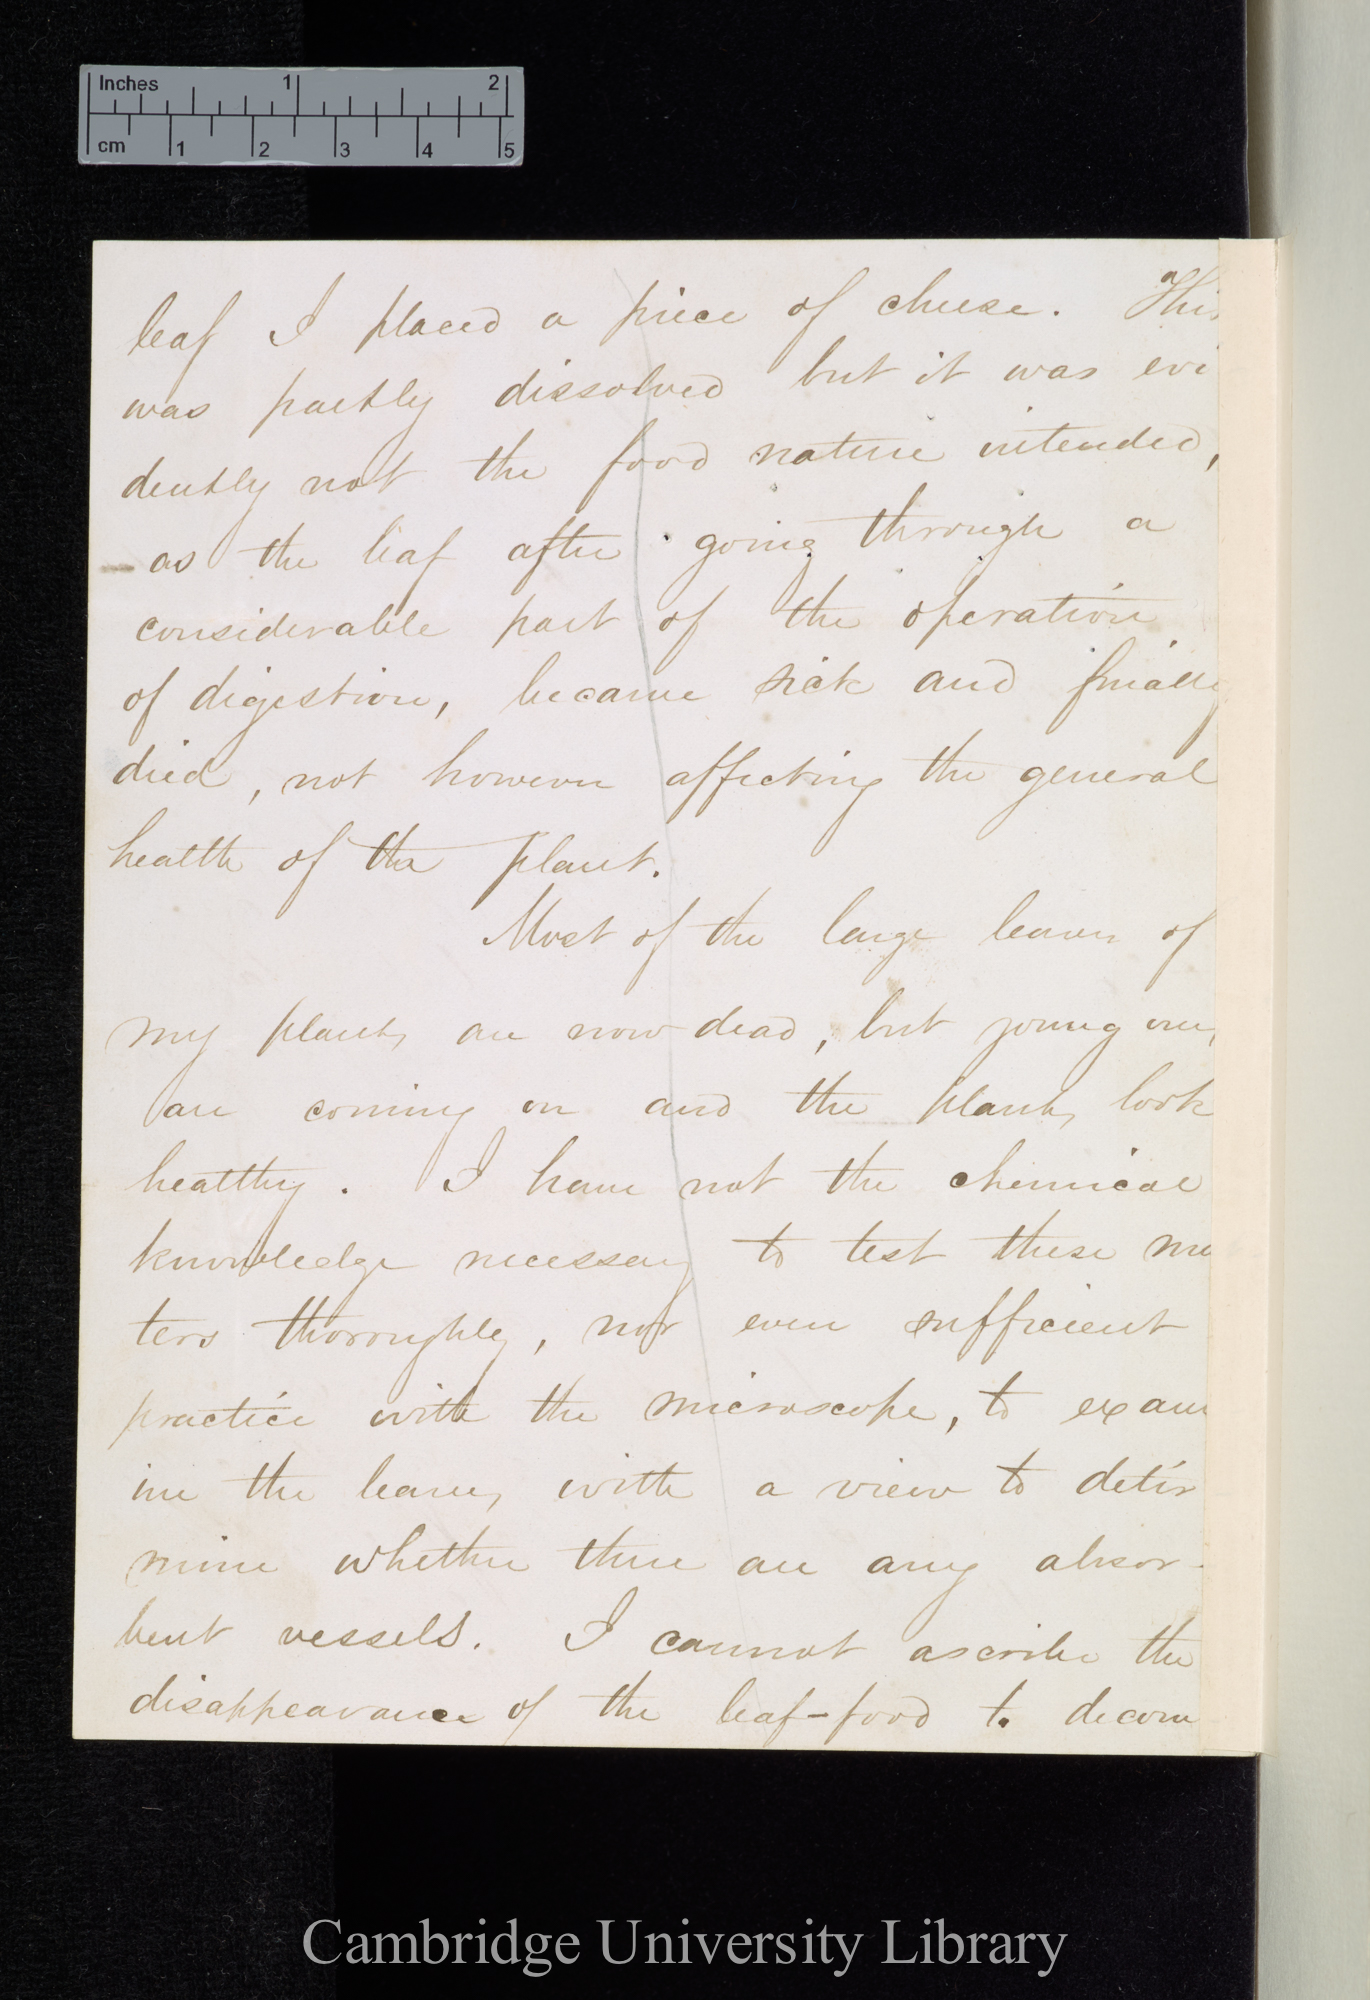 Inches 1 2
cm 1 2 3 4 5
leaf I placed a piece of cheese. This
was partly dissolved but it was evi
dently not the food nature intended,
as the leaf after going through a
considerable part of the operation
of digestion, became sick and finally
died, not however affecting the general
health of the plant.
Most of the large leaves of
my plants are now dead, but young ones
are coming on and the plants look
healthy. I have not the chemical
knowledge necessary to test these ma
ters thoroughly, nor even sufficient
practice with the microscope, to exam
ine the leaves with a view to deter
mine whether there are any absor-
bent vessels. I cannot ascribe the
disappearance of the leaf-food to decom
Cambridge University Library